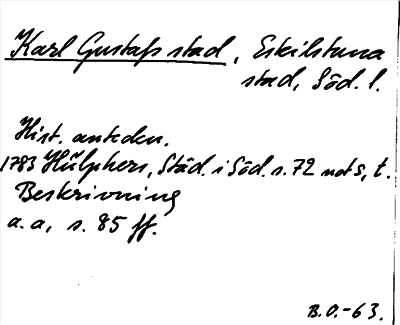 Karl Gustafs stad, Eskilstuna
stad, Söd. l.
Hist. anteckn.
1783 Hülphers, Städ. i Söd. s. 72 not s, t.
Beskrivning
a. a, s. 85 ff.
B. O. - 63.